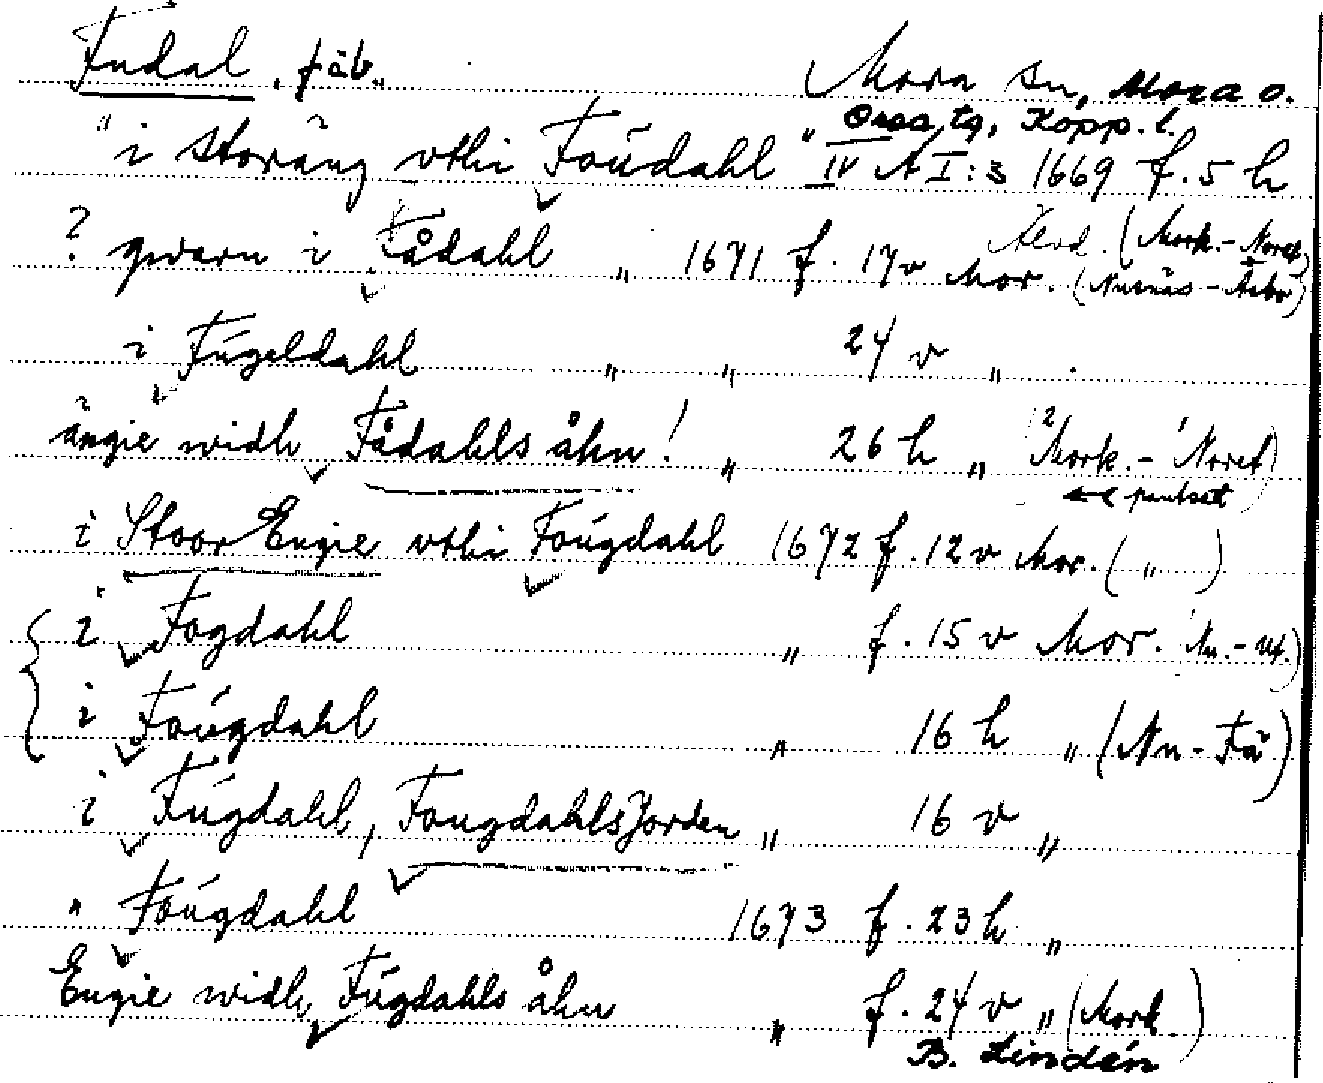 Fudal, fäb. Mora sn, Mora o.
Orsa tg, Kopp. l.
" i storäng vthi Foúdahl " IV A I:3 1669 f. 5 h
? qwarn i Fådahl " 1671 f. 17v Mor. (Mork. - Noret)
(Nusnäs - Åsbo)
i Fúgeldahl " " 24 v "
ängie widh Fådahls åhn! " 26 h " Mork. - Noret)
i Stoor Engie vthi Foúgdahl 1672 f. 12 v Mor. ( " )
i Fogdahl " f. 15 v Mor. Nu. - Ut.)
i Foúgdahl " 16 h " (Nu - Fä)
i Fúgdahl, FougdahlsJorden " 16 v "
" Foúgdahl 1673 f. 23 h "
Engie widh Fúgdahls åhn " f. 24 v " (Mork )
B. Lindén